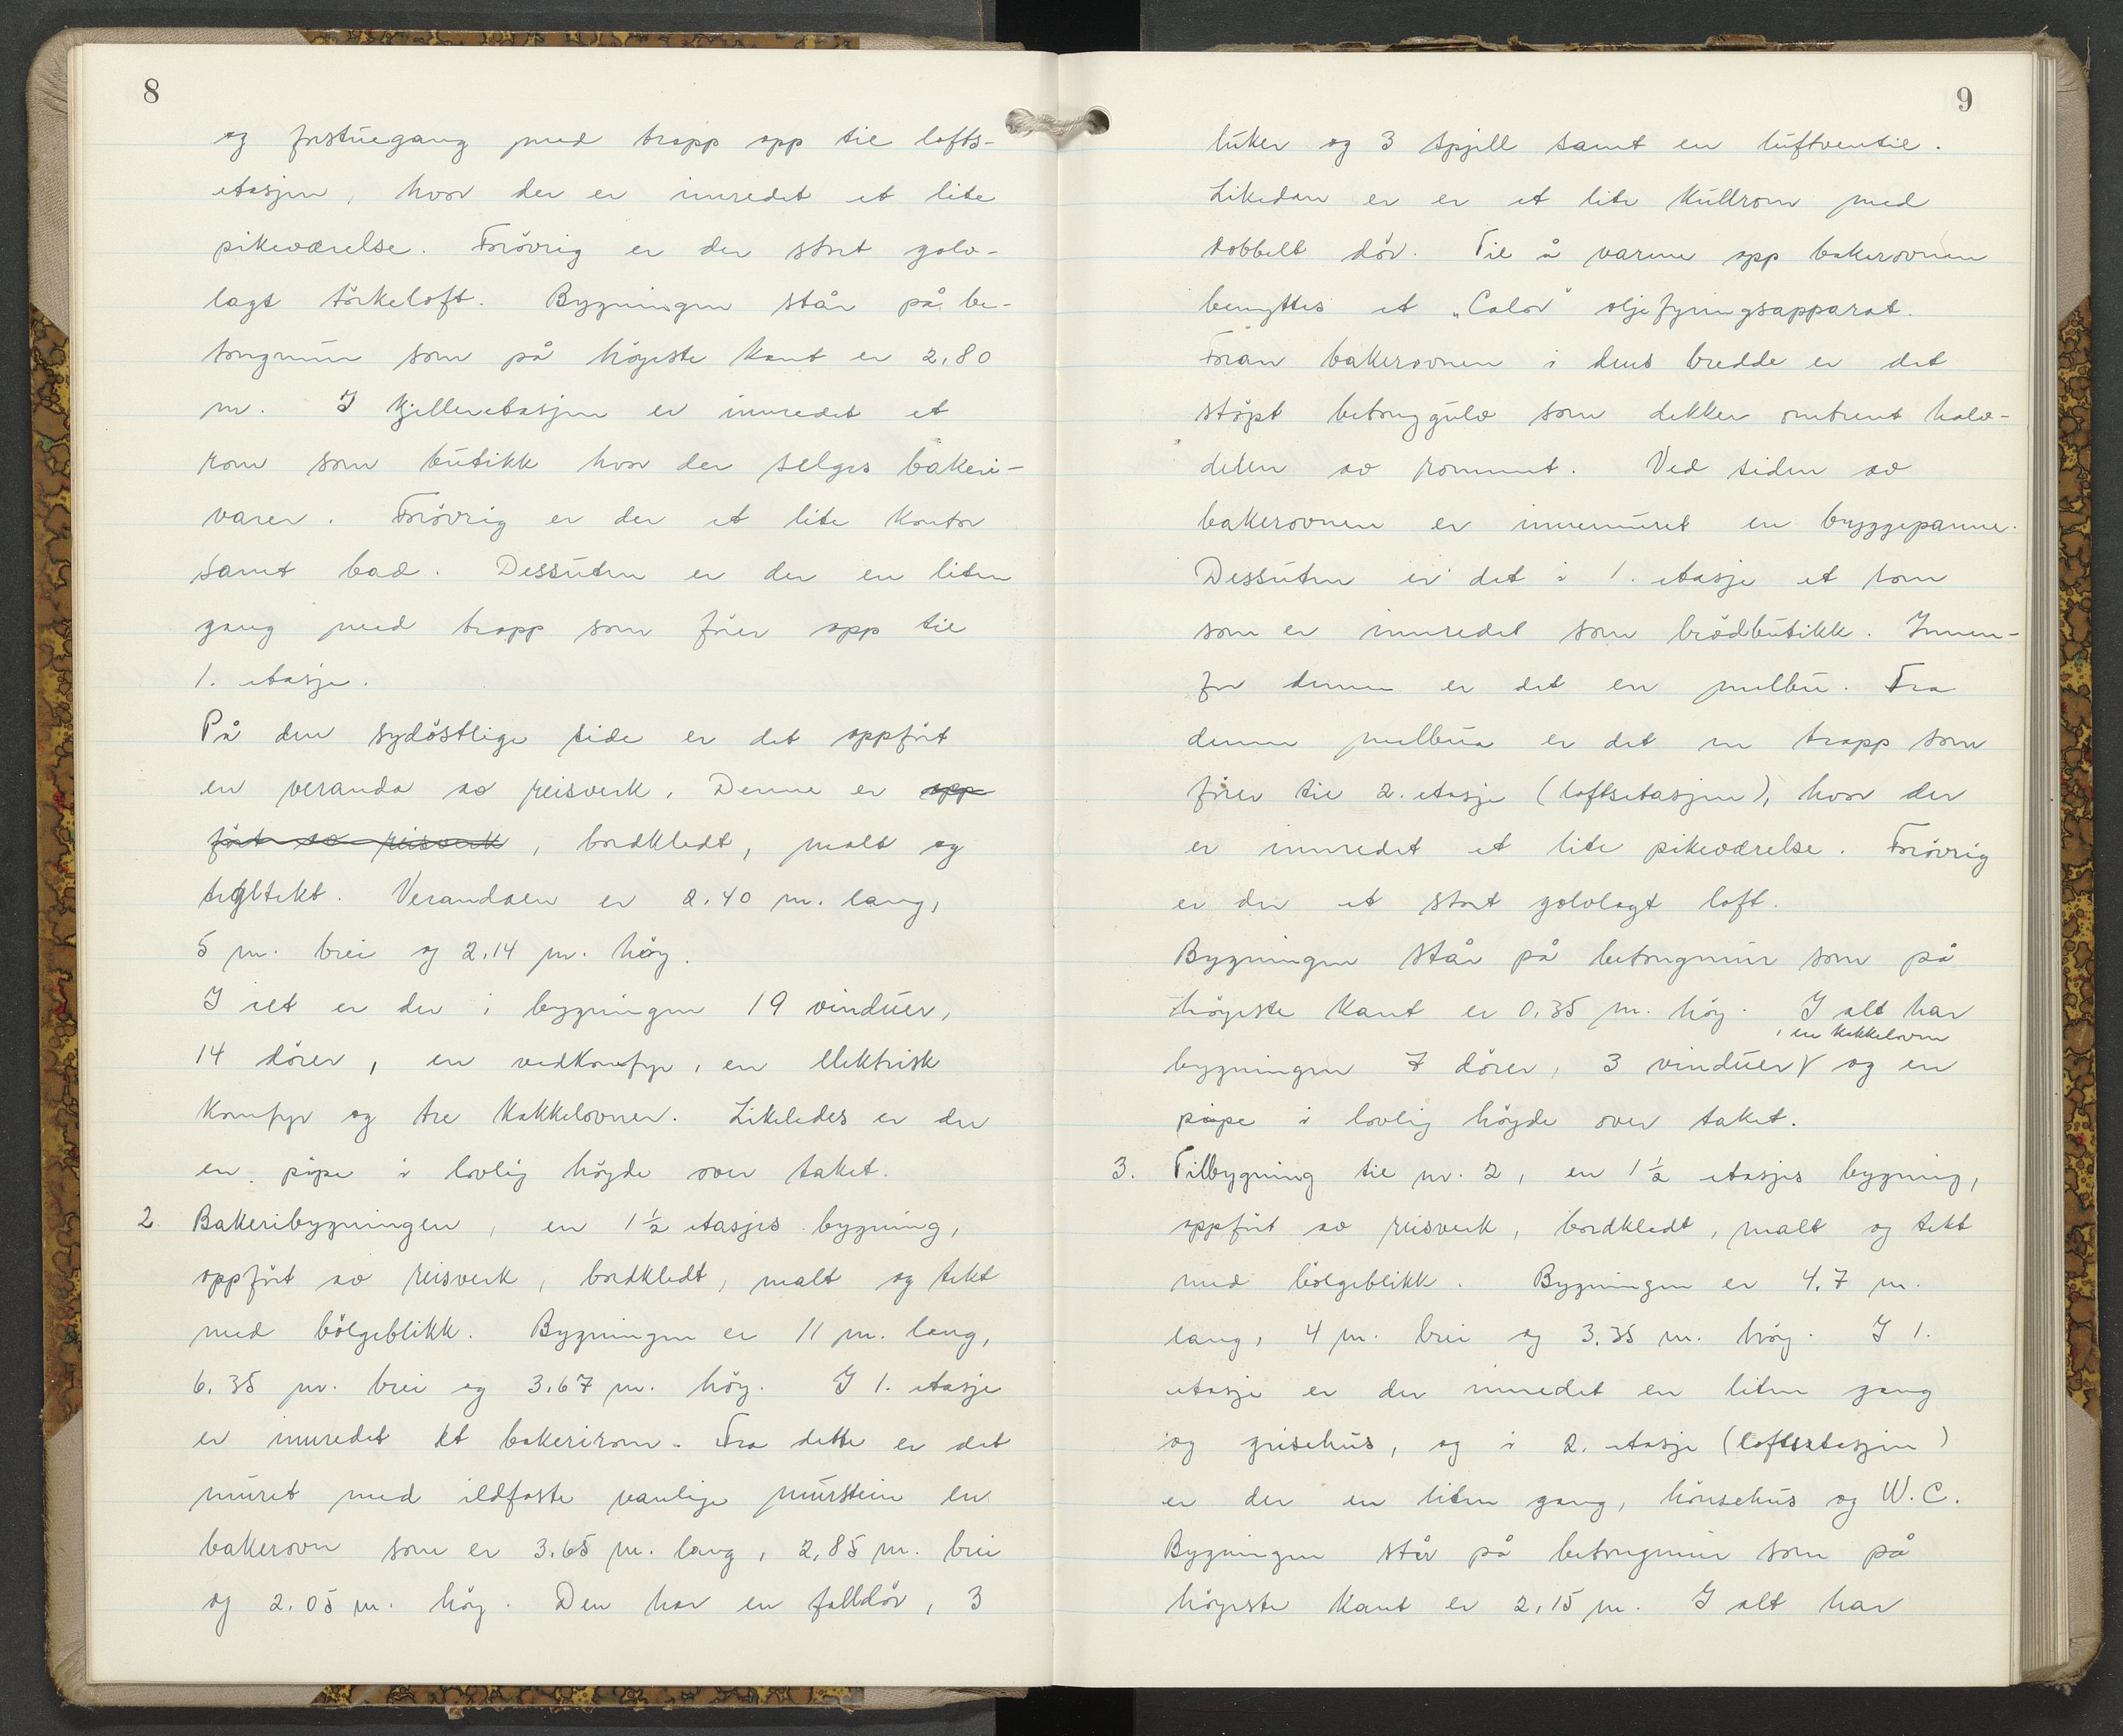 8
og forstuegang med trapp opp til lofts-
etasjen, hvor der er innredet et lite
pikeværelse. Forövrig er der stort golv-
lagt törkeloft. Bygningen står på be-
tongmur som på högeste kant er 2,80
m. I kjelleretasjen er innredet et
rom som butikk hvor der selges bakeri-
varer. Forövrig er der et lite kontor
samt bad. Dessuten er der en liten
gang med trapp som förer opp til
1. etasje.
På den sydöstlige side er det oppfört
en veranda av reisverk. Denne er opp
fört av reisverk, bordkledt, malt og
tegltekt. Verandaen er 2.40 m. lang,
5 m. brei og 2.14 m. höy.
I alt er der i bygningen 19 vinduer,
14 dörer, en vedkomfyr, en elektrisk
komfyr og tre kakkelovner. Likeledes er der
en pipe i lovlig höyde over taket.
2. Bakeribygningen, en 1½ etasjes bygning,
oppfört av reisverk, bordkledt, malt og tekt
med bölgeblikk. Bygningen er 11 m. lang,
6.35 m. brei og 3.67 m. höy. I 1. etasje
er innredet et bakerirom. Fra dette er det
muret med ildfaste vanlige murstein en
bakerovn som er 3.65 m. lang, 2,85 m. brei
og 2.05 m. höy. Den har en falldör, 3
9
luker og 3 spjell samt en luftventil.
Likedan er er et lite kullrom med
dobbelt dör. Til å varme opp bakerovnen
benyttes et „Calor" oljefyringsapparat.
Foran bakerovnen i dens bredde er det
stöpt betonggulv som dekker omtrent halv-
delen av rommet. Ved siden av
bakerovnen er innemuret en bryggepanne.
Dessuten er det i 1. etasje et rom
som er innredet som brödbutikk. Innen-
for denne er det en melbu. Fra
denne melbua er det en trapp som
förer til 2. etasje (loftsetasjen), hvor der
er innredet et lite pikeværelse. Forövrig
er der et stort golvlagt loft.
Bygningen står på betongmur som på
högeste kant er 0,35 m. höy. I alt har
, en kakkelovn
bygningen 7 dörer, 3 vinduer og en
pipe i lovlig höyde over taket.
3. Tilbygning til nr. 2, en 1½ etasjes bygning,
oppfört av reisverk, bordkledt, malt og tekt
med bölgeblikk. Bygningen er 4,7 m.
lang, 4 m. brei og 3,35 m. höy. I 1.
etasje er der innredet en liten gang
og grisehus, og i 2. etasje (loftsetasjen)
er der en liten gang, hönsehus og W.C.
Bygningen står på betongmur som på
högeste kant er 2,15 m. I alt har